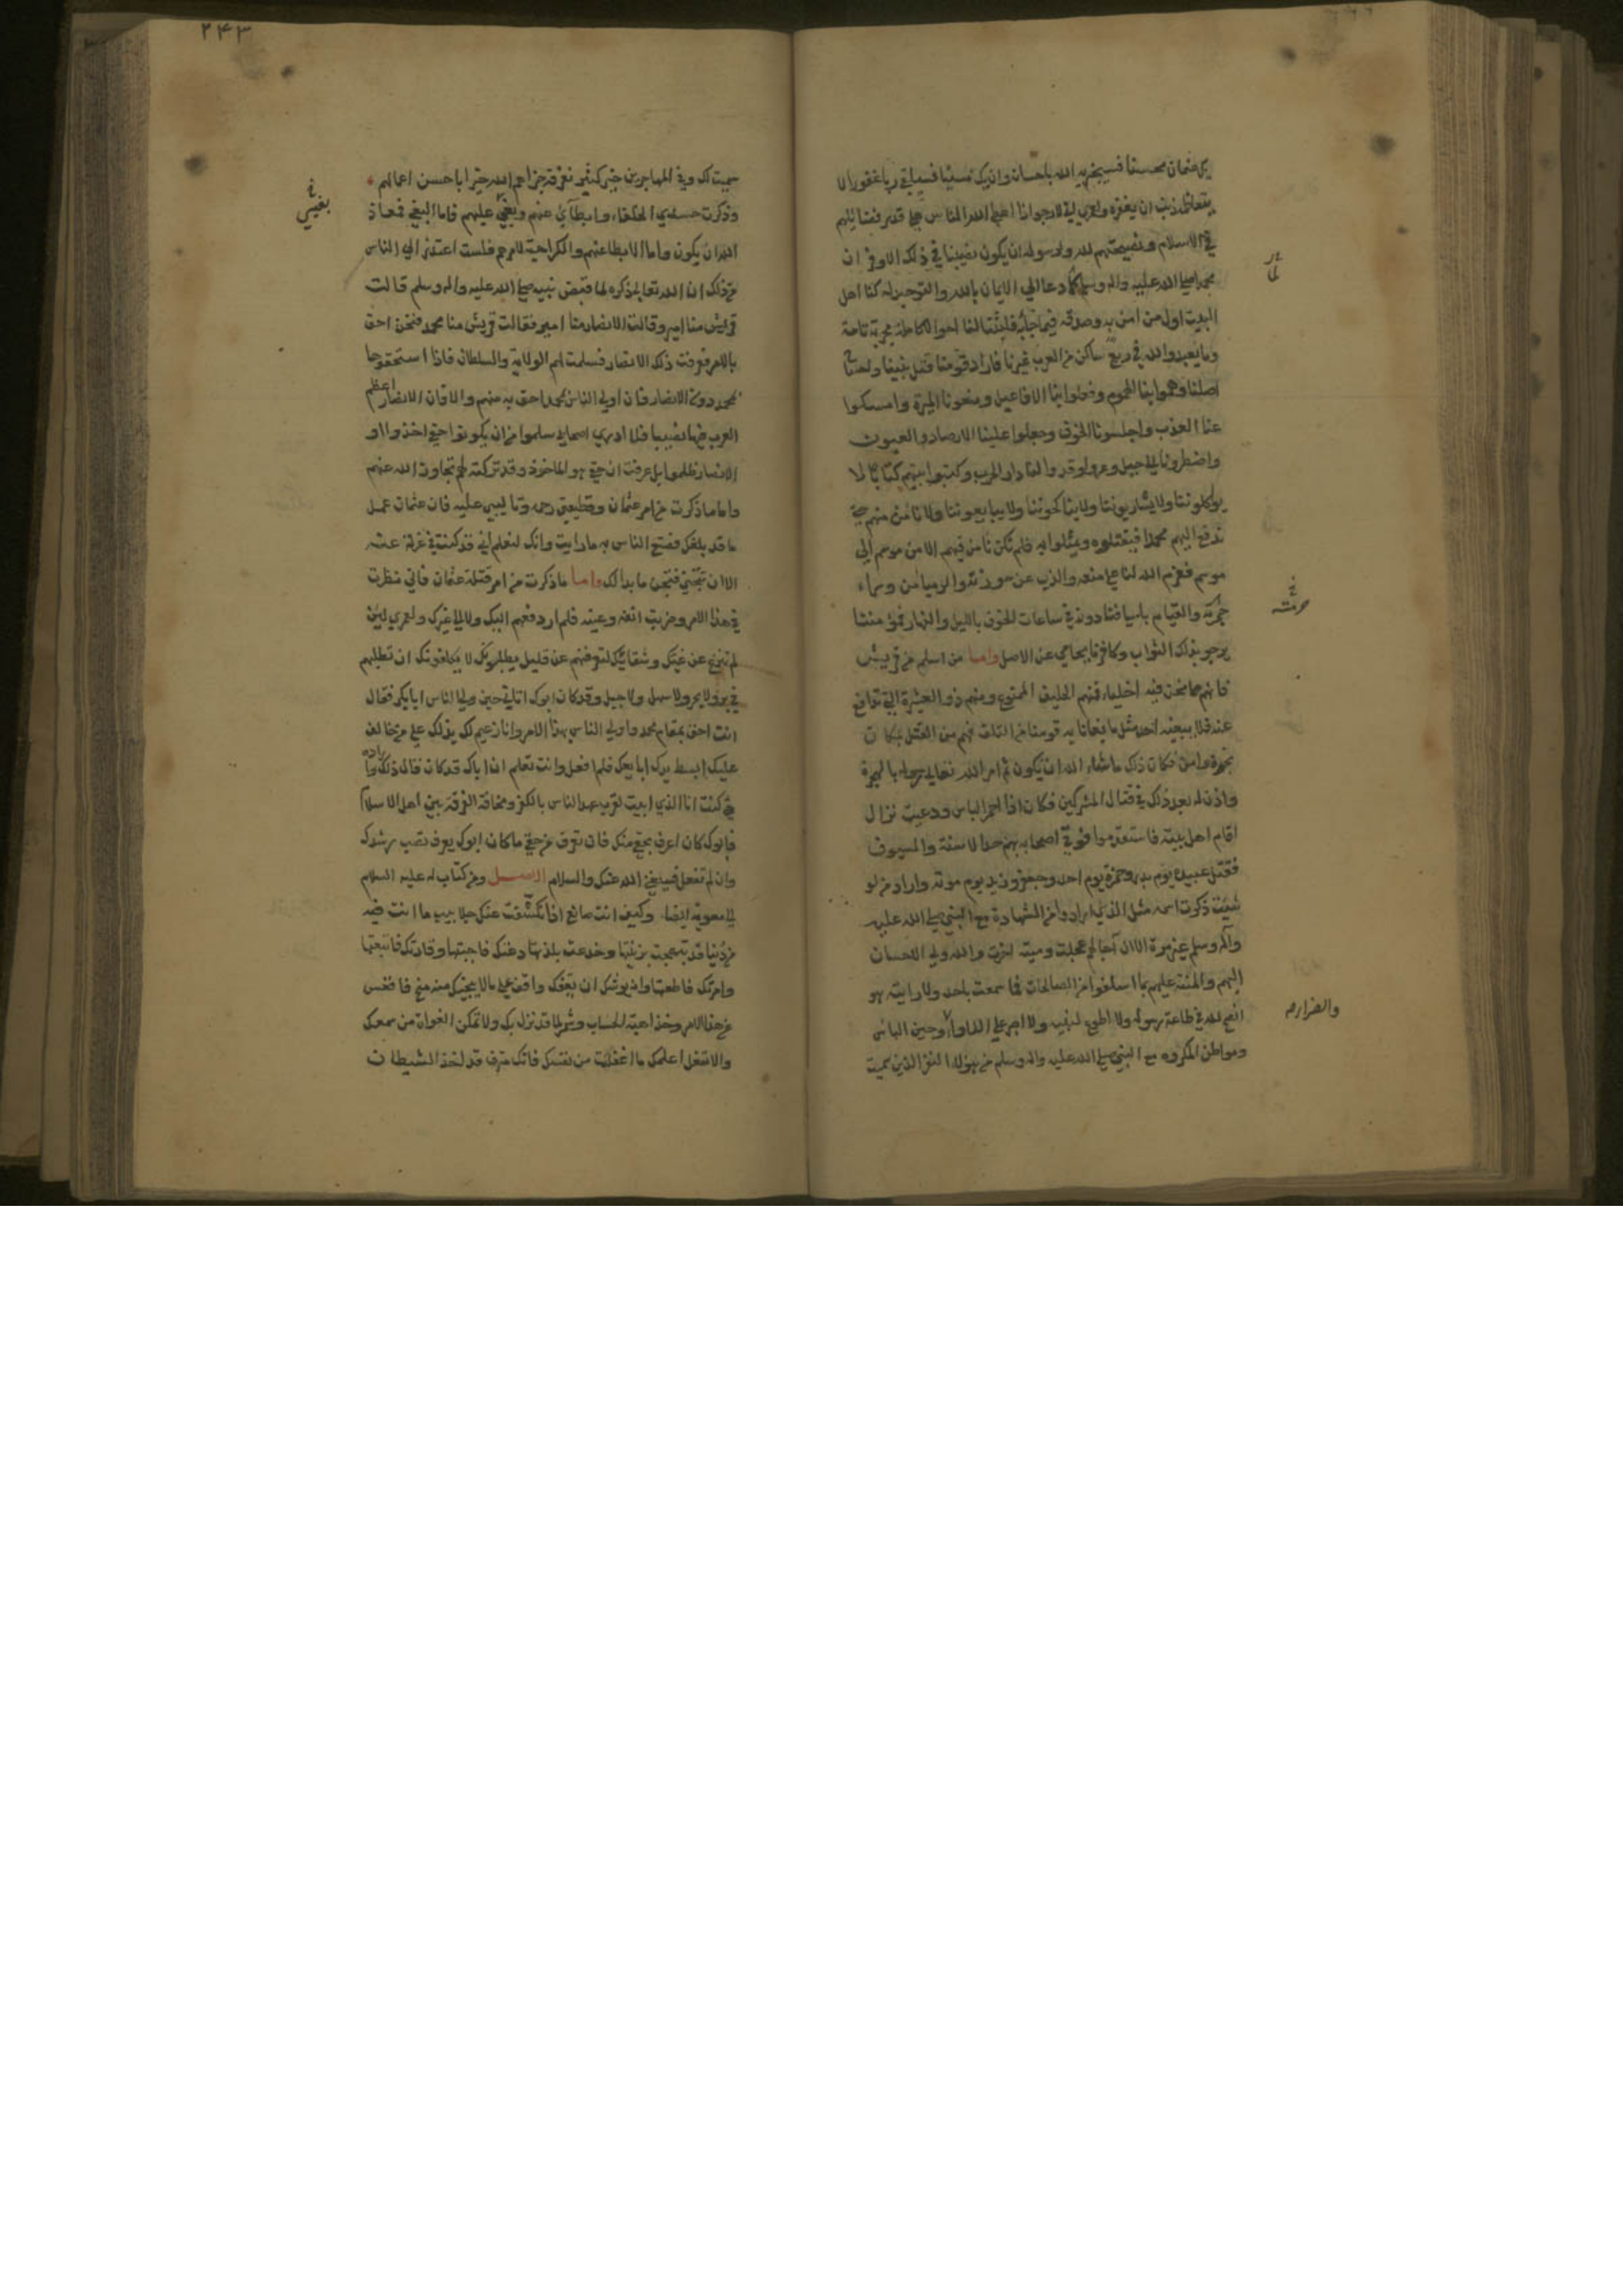 يك عثمان محسنا فسيجزيه الله باحسانه وان يك مسيئا فسيلقى ربا غفورا لا
يتعاظمه ذنب ان يغفره ولعمري اني لارجو اذا اعطى الله الناس على قدر فضائلهم
في الاسلام ونصيحتهم لله ولرسوله ان يكون نصيبنا في ذلك الاوفر ان
محمدا صلى الله عليه واله وسلم لما دعا الى الايمان بالله والتوحيد له كنا اهل
البيت اول من امن به وصدقه فيما جاء به فلبثنا احوالا كاملة مجرمة تامة
وما يعبد والله في ربع ساكن من العرب غيرنا فاراد قومنا قتل نبينا واجتياح
اصلنا وهموا بنا الهموم وفعلوا بنا الافاعيل ومنعونا الميرة وامسكوا
عنا العذب واحلسونا الخوف وجعلوا علينا الارصاد والعيون
واضطرونا الى جبل وعر واوقدوا لنا نار الحرب وكتبوا بينهم كتابا لا
يواكلوننا ولا يشاربوننا ولا يناكحوننا ولا يبايعوننا ولا نامن منهم حتى
ندفع اليهم محمدا فيقتلوه ويمثلوا به فلم نكن نامن فيهم الا من موسم الى
موسم فعزم الله لنا على منعه والذب عن حوزته والرميا من وراء
حرمته والقيام باسيافنا دونه في ساعات الخوف بالليل والنهار فمؤمننا
يرجو بذلك الثواب وكافرنا يحامي عن الاصل واما من اسلم من قريش
فانهم مما نحن فيه اخلياء فمنهم الحليف الممنوع ومنهم ذو العشيرة التي تدافع
عنه فلا يبغيه احد مثل ما بغانا به قومنا من التلف فهم من القتل بمكان
نجوة وامن فكان ذلك ما شاء الله ان يكون ثم امر الله تعالى رسوله بالهجرة
واذن له بعد ذلك في قتال المشركين فكان اذا احمر الباس ودعيت نزال
اقام اهل بيته فاستقدموا فوقى اصحابه بهم حد الاسنة والسيوف
فقتل عبيدة يوم بدر وحمزة يوم احد وجعفر وزيد يوم موته واراد من لو
شئت ذكرت اسمه مثل الذي ارادوا من الشهادة مع النبي صلى الله عليه
واله وسلم غير مرة الا ان اجالهم عجلت ومنيته اخرت والله ولي الاحسان
اليهم والمنة عليهم بما اسلفوا من الصالحات فما سمعت باحد ولا رايته هو
انصح لله في طاعة رسوله ولا اطوع لنبيه ولا اصبر على اللاواء وحين الباس
ومواطن المكروه مع النبي صلى الله عليه واله وسلم من هؤلاء النفر الذين سميت
حرمته
والضرا
سميت لك وفي المهاجرين خير كثير نعرفه جزاهم الله خيرا باحسن اعمالهم
وذكرت حسدي الخلفاء وابطائي عنهم وبغيي عليهم فاما البغي فمعاذ
الله ان يكون واما الابطا عنهم والكراهية لامرهم فلست اعتذر الى الناس
من ذلك ان الله تعالى ذكره لما قبض نبيه صلى الله عليه واله وسلم قالت
قريش منا امير وقالت الانصار منا امير فقالت قريش منا محمد فنحن احق
بالامر فعرفت ذلك الانصار فسلمت لهم الولاية والسلطان فاذا استحقوها
بمحمد دون الانصار فان اولى الناس بمحمد احق به منهم والا فان الانصار اعظم
العرب فيها نصيبا فلا ادري اصحابي سلموا من ان يكونوا حقي اخذوا او
الانصار ظلموا بل عرفت ان حقي هو الماخوذ وقد تركته لهم تجاوز الله عنهم
واما ما ذكرت من امر عثمان وقطيعتي رحمه وتاليبي عليه فان عثمان عمل
ما قد بلغك فصنع الناس به ما رايت وانك لتعلم اني قد كنت في عزلة عنه
الا ان تتجنى فتجن ما بدا لك واما ما ذكرت من امر قتلة عثمان فاني نظرت
في هذا الامر وضربت انفه وعينه فلم ار دفعهم اليك ولا الى غيرك ولعمري لئن
لم تنزع عن غيك وشقاقك لتعرفنهم عن قليل يطلبونك لا يكلفونك ان تطلبهم
في بر ولا بحر ولا سهل ولا جبل وقد كان ابوك اتاني حين ولى الناس ابا بكر فقال
انت احق بمقام محمد واولى الناس بهذا الامر وانا زعيم لك بذلك على من خالف
عليك ابسط يدك ابايعك فلم افعل وانت تعلم ان اباك قد كان قال ذلك واراده
حتى كنت انا الذي ابيت لقرب عهد الناس بالكفر ومخافة الفرقة بين اهل الاسلام
فابوك كان اعرف بحقي منك فان تعرف من حقي ما كان ابوك يعرف تصب رشدك
وان لم تفعل فسيغني الله عنك والسلام الاصل ومن كتاب له عليه السلام
الى معوية ايضا وكيف انت صانع اذا تكشفت عنك جلابيب ما انت فيه
من دنيا قد تبهجت بزينتها وخدعت بلذتها دعتك فاجبتها وقادتك فاتبعتها
وامرتك فاطعتها وانه يوشك ان يقفك واقف على ما لا ينجيك منه منج فاقعس
عن هذا الامر وخذ اهبة الحساب وشمر لما قد نزل بك ولا تمكن الغواة من سمعك
والا تفعل اعلمك ما اغفلت من نفسك فانك مترف قد اخذ الشيطان
بغيي
۲۴۳